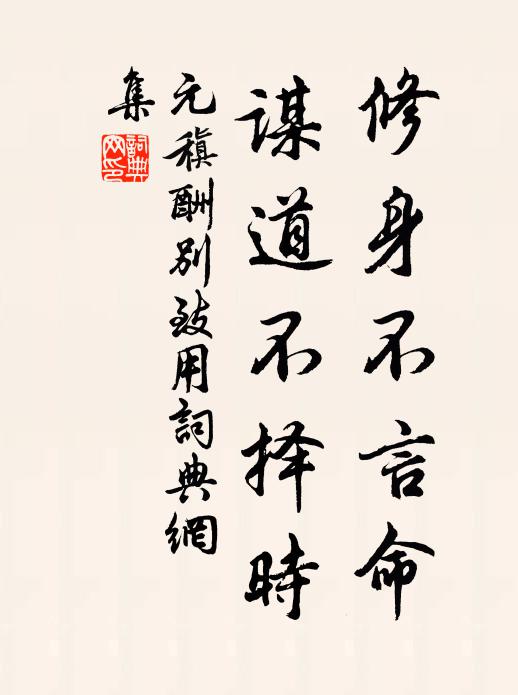 修身不言命
謀道不择時
元稹酬别致用詞典網
集
詞典網印